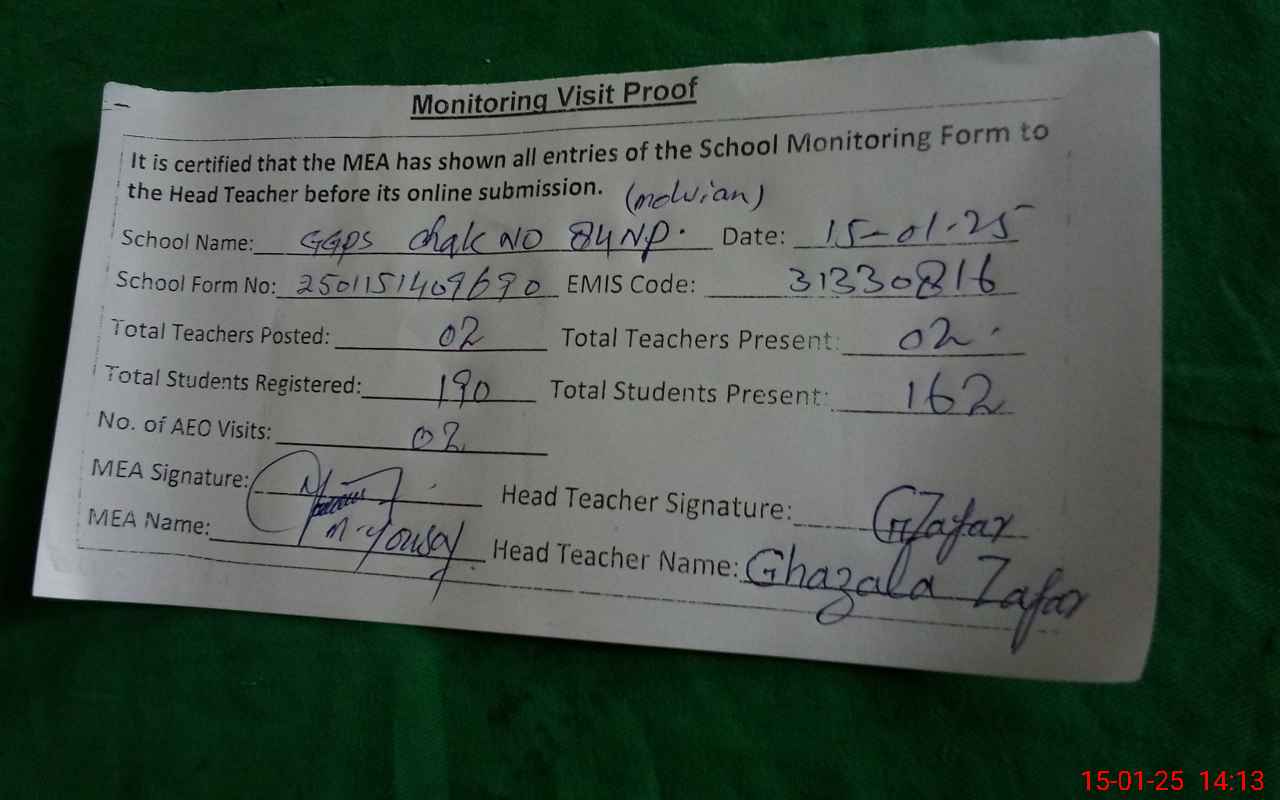 Monitoring Visit Proof
It is certified that the MEA has shown all entries of the School Monitoring Form to
the Head Teacher before its online submission. (molvian)
School Name: GGPS Chak NO 84 N.P. Date: 15-01-25
School Form No: 2501151409690 EMIS Code: 31330816
Total Teachers Posted: 02 Total Teachers Present: 02
Total Students Registered: 190 Total Students Present: 162
No. of AEO Visits: 02
MEA Signature: Head Teacher Signature: GZafar
MEA Name: M-Yousaf Head Teacher Name: Ghazala Zafar
15-01-25 14:13